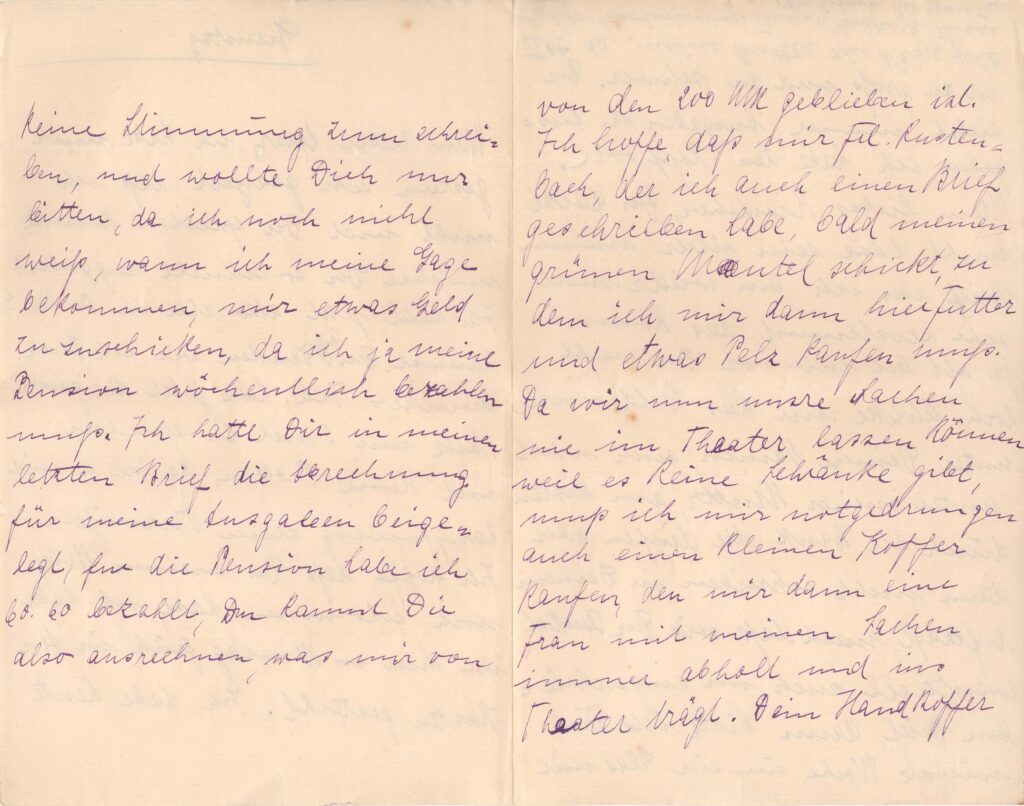 keine Stimmung zum schrei-
ben, und wollte Dich nur
bitten, da ich noch nicht
weiß, wann ich meine Gage
bekommen, mir etwas Geld
zu zuschicken, da ich ja meine
Pension wöchentlich bezahlen
muß. Ich hatte Dir in meinen
letzten Brief die Berechnung
für meine Ausgaben beige-
legt, für die Pension habe ich
60.60 bezahlt, Du kannst Dir
also ausrechnen, was mir von
von den 200 Mk geblieben ist.
Ich hoffe, daß mir Frl. Rusten-
bach, der ich auch einen Brief
geschrieben habe, bald meinen
grünen Mantel schickt, zu
dem ich mir dann hier Futter
und etwas Pelz kaufen muß.
Da wir nun unsre Sachen
nie im Theater lassen können
weil es keine Schränke gibt,
muß ich mir notgedrungen
auch einen kleinen Koffer
kaufen, den mir dann eine
Frau mit meinen Sachen
immer abholt und ins
Theater trägt. Dein Handkoffer